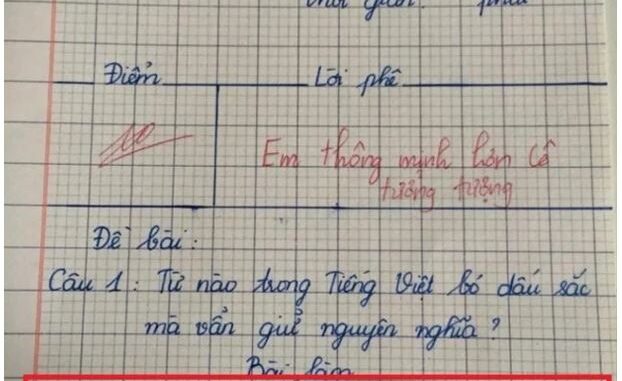 Điểm Lời phê
10 Em thông minh hơn cô
tưởng tượng
Đề bài:
Câu 1: Từ nào trong Tiếng Việt bỏ dấu sắc
mà vẫn giữ nguyên nghĩa?
Bài làm